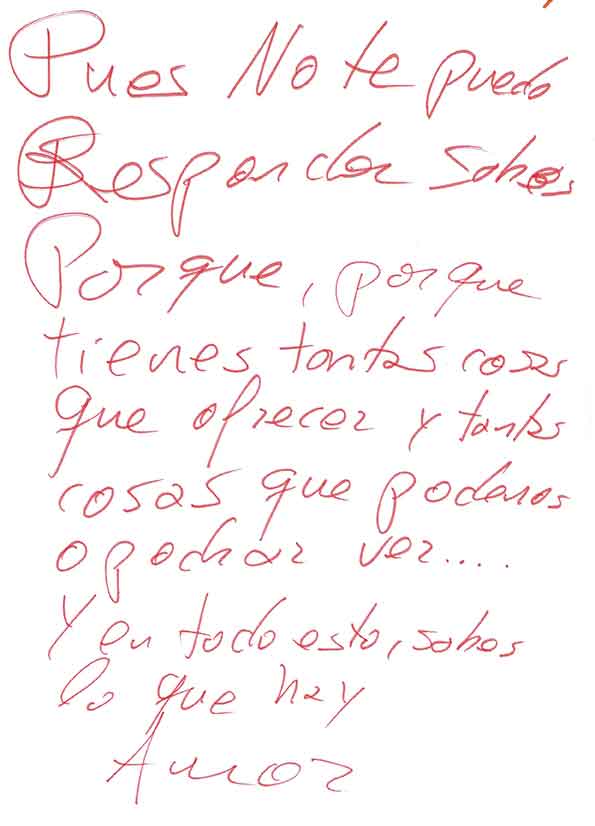 Pues No te puedo
Responder sabes
Porque, porque
tienes tantas cosas
que ofrecer y tantas
cosas que podemos
o podrar ver....
Y en todo esto, sabes
lo que hay
Amor